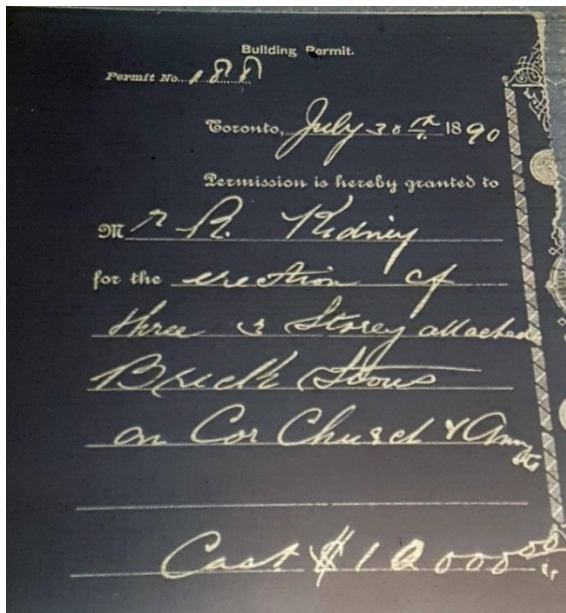 Building Permit.
Permit No. 188
Toronto, July 30th 1890
Permission is hereby granted to
Mr R. Kidney
for the erection of
three 3 Storey attached
Brick Stores
on Cor Church & Ann St
Cost $10000.00